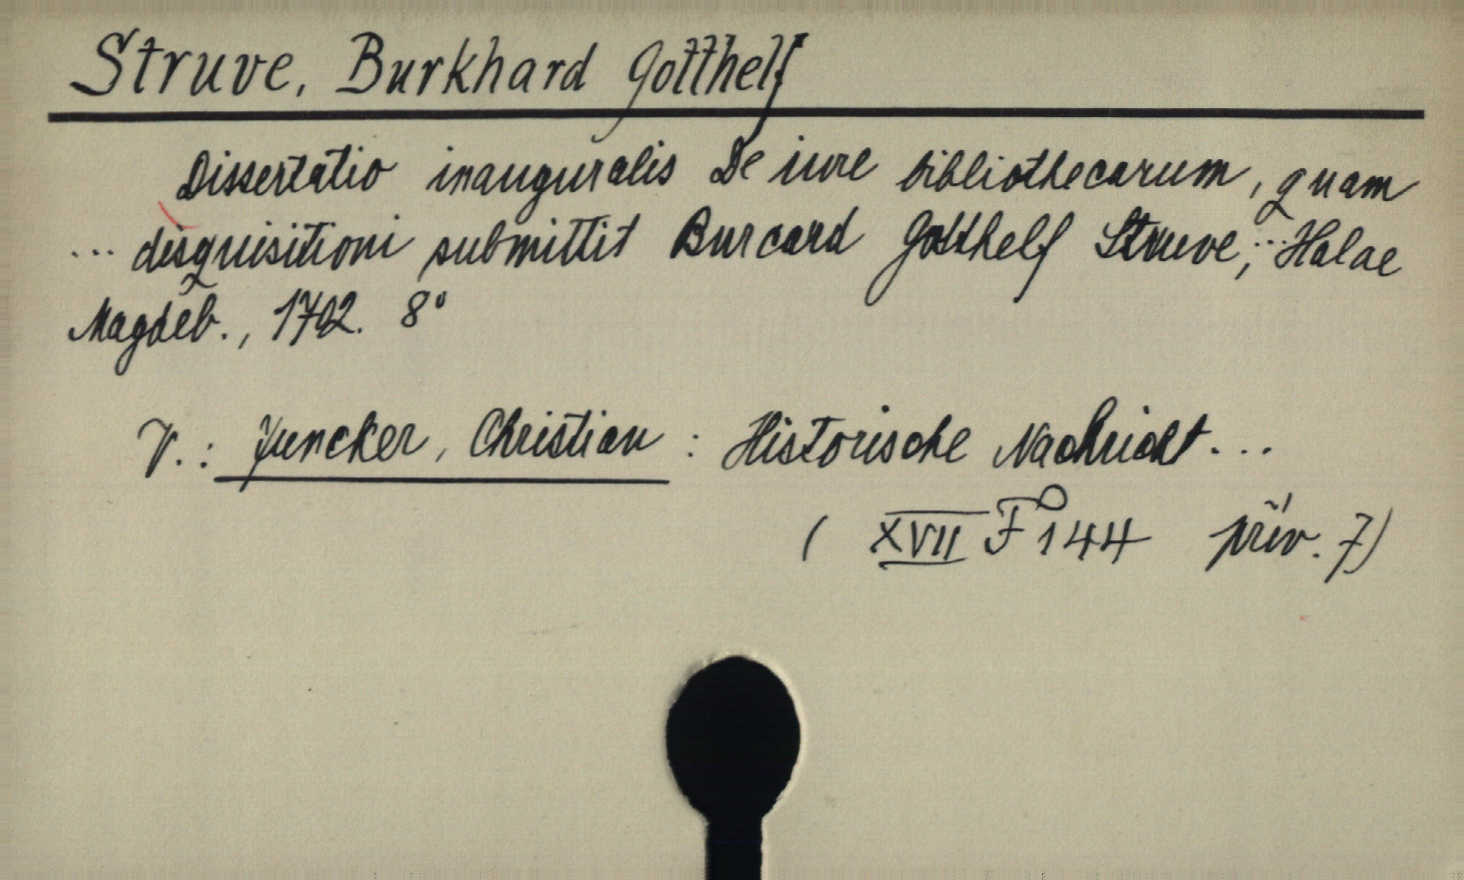 Struve, Burkhard Gotthelf
Dissertatio inauguralis De iure bibliothecarum, quam
... disquisitioni submittit Burcard Gotthelf Struve, ... Halae
Magdeb., 1702. 8°
V.: Juncker, Christian: Historische Nachricht...
( XVII F 144 přív. 7)